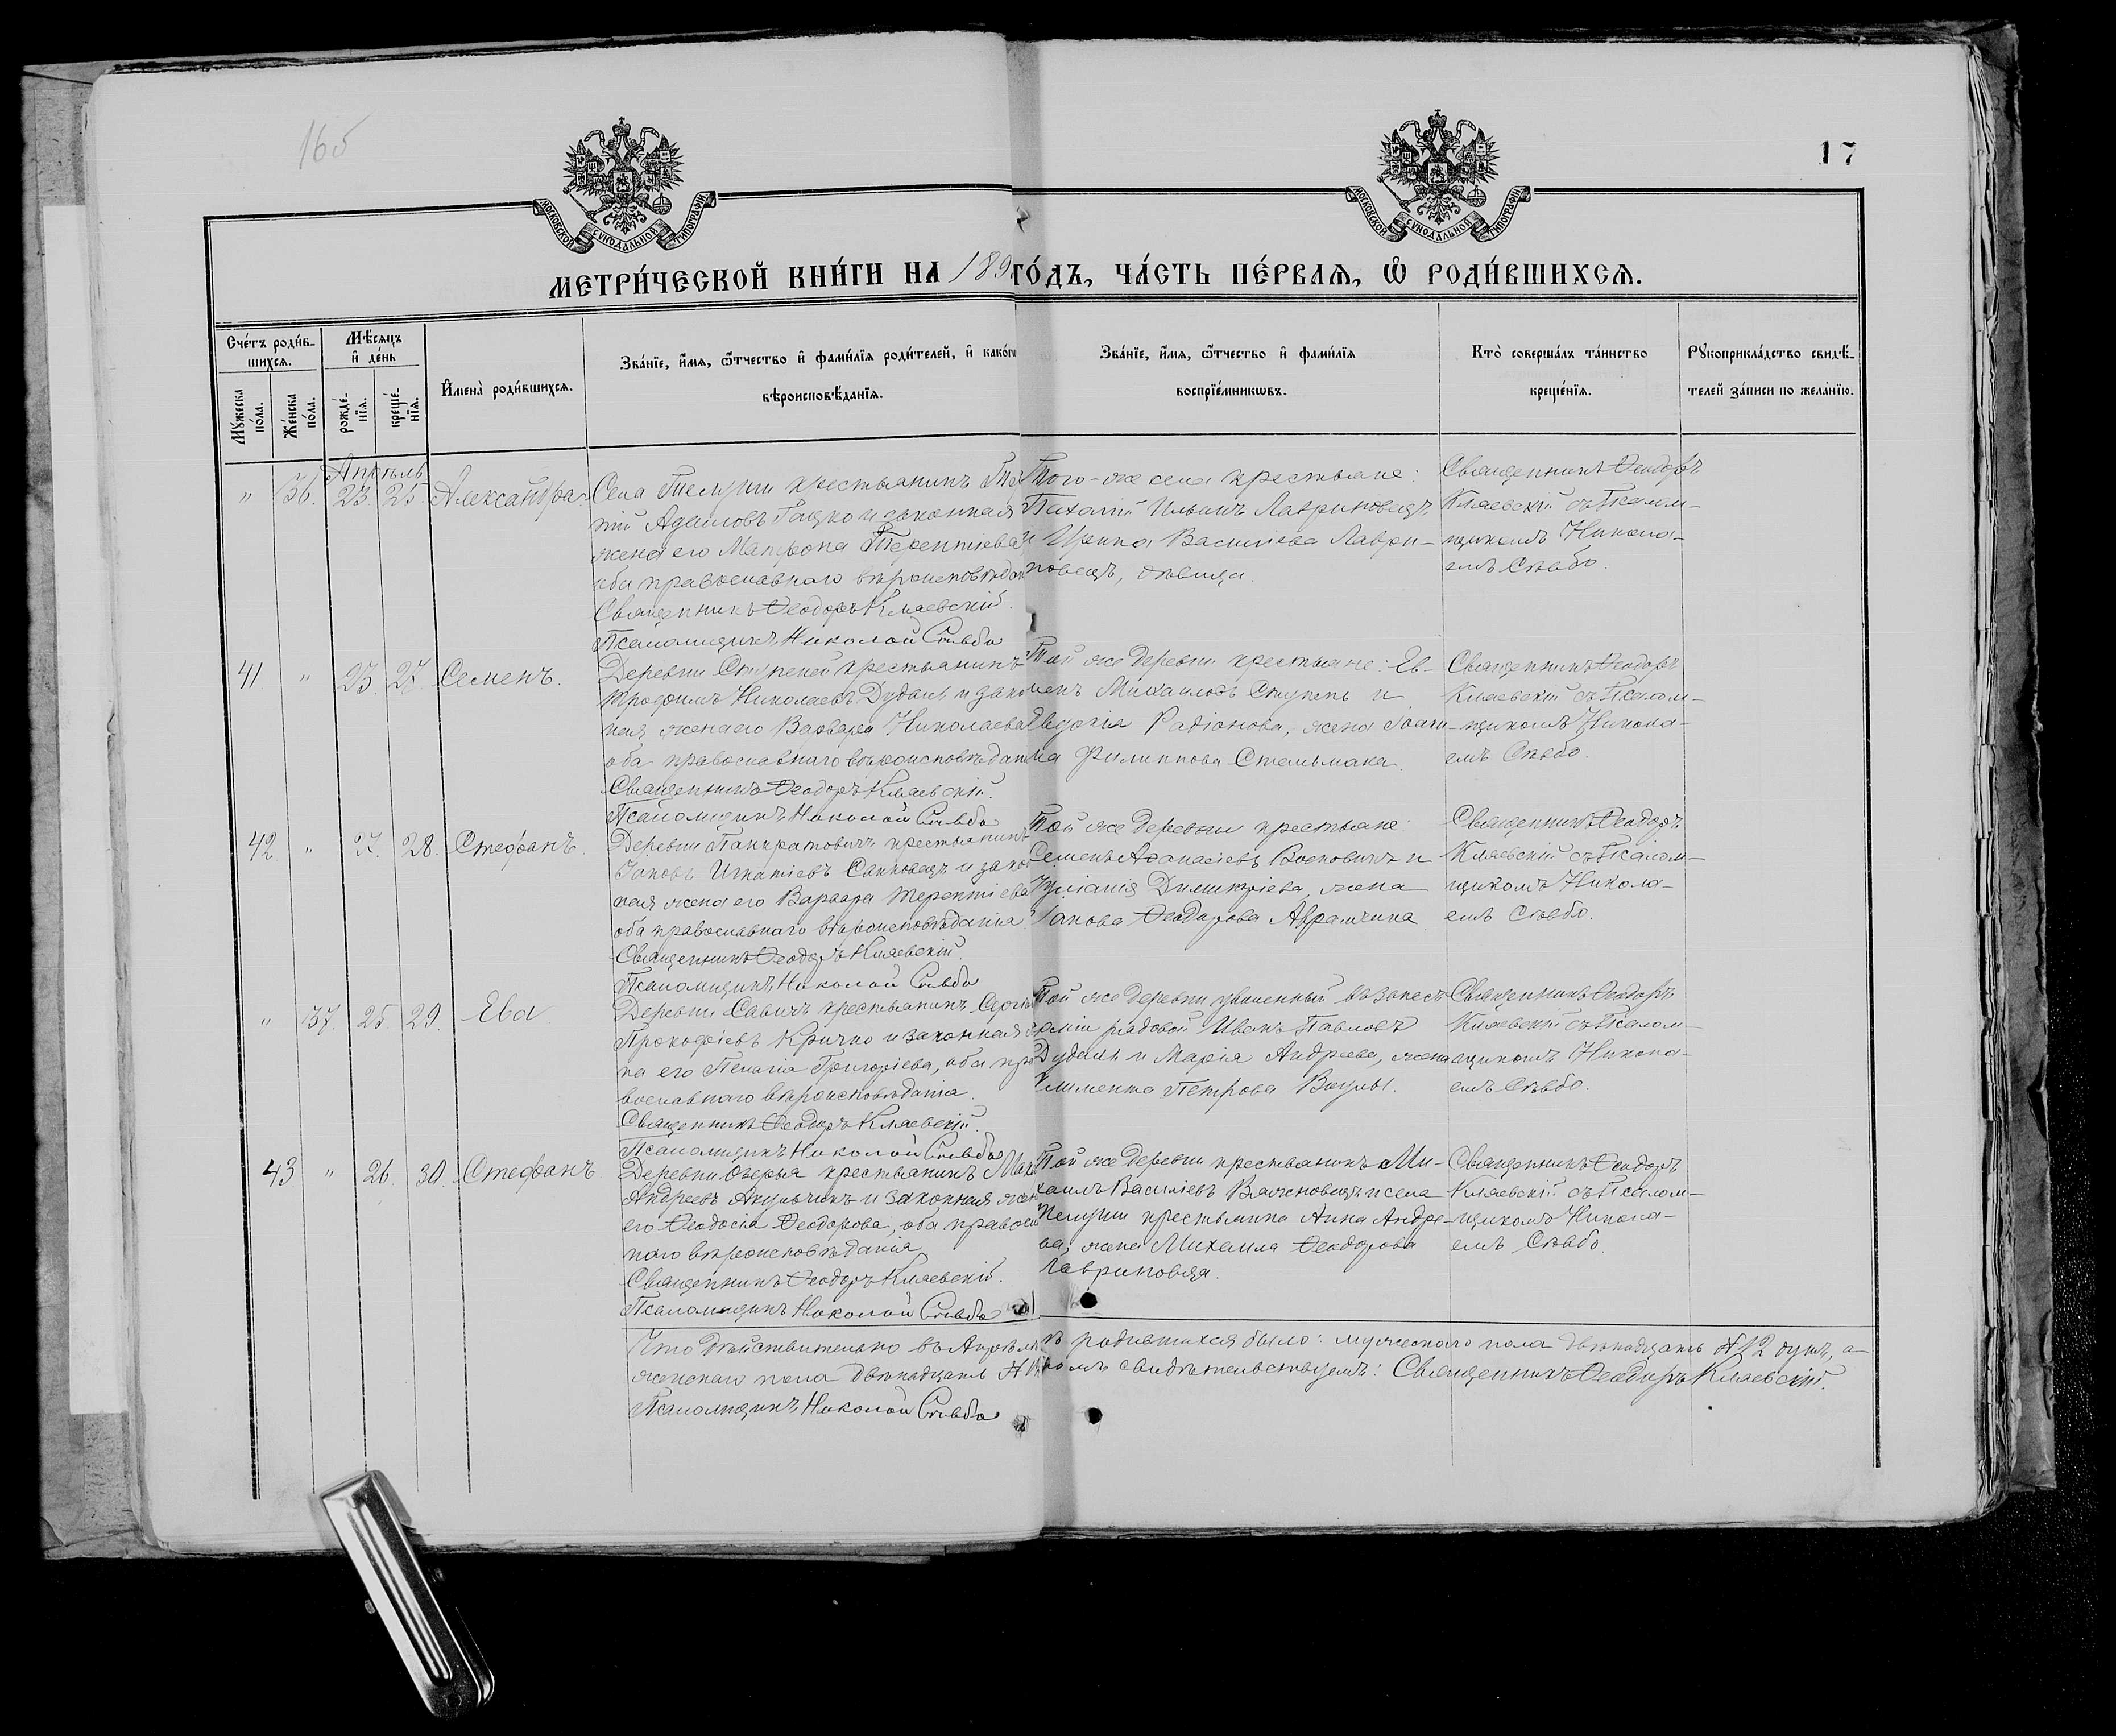 16б
17
МОСКОВСКОЙ СѴНОДАЛЬНОЙ ТИПОГРАФІИ
МОСКОВСКОЙ СѴНОДАЛЬНОЙ ТИПОГРАФІИ
МЕТРИ́ЧЕСКОЙ КНИ́ГИ НА 189 ГО́ДЪ, ЧА́СТЬ ПЕ́РВАѦ, Ѡ҆ РОДИ́ВШИХСѦ.
Сче́тъ роди́в-
шихсѧ.
Мꙋжеска
по́ла.
Же́нска
по́ла.
Мѣ́сѧцъ
и҆ де́нь
рожде́-
нїѧ.
креще́-
нїѧ.
И҆мена̀ роди́вшихсѧ.
Зва́нїе, и҆́мѧ, ѻ҆́тчество и҆ фами́лїѧ роди́телей, и҆ како́гѡ
вѣроисповѣ́данїѧ.
Зва́нїе, и҆́мѧ, ѻ҆́тчество и҆ фами́лїѧ
воспрїе́мникѡвъ.
Кто̀ соверша́лъ та́инство
креще́нїѧ.
Рꙋкоприкла́дство свидѣ́-
телей за́писи по жела́нїю.
Апрѣль
" 36. 23. 25. Александра.
Села Телуши крестьянинъ
тій Адамовъ Гацко и законная
жена его Матрона Терентіева
оба православнаго вѣроисповѣдан
Священникъ Ѳеодоръ Кляевскій.
Псаломщикъ Николай Сѣвбо
Того-же села крестьяне:
Пахомій Ильинъ Лавриновецъ
и Ирина Василіева Лаври-
новецъ, дѣвица.
Священникъ Ѳеодоръ
Кляевскій съ Псалом-
щикомъ Никола-
емъ Сѣвбо.
41. " 23. 27. Семенъ.
Деревни Ступеней крестьянинъ
Трофимъ Николаевъ Дудаль и закон
ная жена его Варвара Николаева
оба православнаго вѣроисповѣдан
Священникъ Ѳеодоръ Кляевскій.
Псаломщикъ Николай Сѣвбо
Той же деревни крестьяне: Ев-
Михаиловъ Ступень и
Евдокія Радіонова, жена Іоан-
на Филиппова Стельмака.
Священникъ Ѳеодоръ
Кляевскій съ Псалом-
щикомъ Никола-
емъ Сѣвбо.
42. " 27. 28. Стефанъ.
Деревни Панкратовичъ крестьянинъ
Іаковъ Игнатіевъ и закон
ная жена его Варвара Терентіева
оба православнаго вѣроисповѣданія
Священникъ Ѳеодоръ Кляевскій.
Псаломщикъ Николай Сѣвбо
Той же деревни крестьяне
Семенъ Аѳанасіевъ и
Іуліанія Димитріева, жена
Іакова Ѳеодорова Аврамчика
Священникъ Ѳеодоръ
Кляевскій съ Псалом-
щикомъ Никола-
емъ Сѣвбо.
" 37. 25. 29. Ева
Деревни Савичъ крестьянинъ
Прокофіевъ Кричко и законная
на его Пелагія Григоріева, оба пра
вославнаго вѣроисповѣданія.
Священникъ Ѳеодоръ Кляевскій.
Псаломщикъ Николай Сѣвбо
Той же деревни уволенный въ запасъ
арміи рядовой Иванъ Павловъ
Дудаль и Марія Андреева, жена
Климента Петрова
Священникъ Ѳеодоръ
Кляевскій съ Псалом-
щикомъ Никола-
емъ Сѣвбо.
43 " 26. 30. Стефанъ.
Деревни Озерья крестьянинъ
Андреевъ Акульчикъ и законная жен
его Ѳеодосія Ѳеодорова, оба правосл
наго вѣроисповѣданія
Священникъ Ѳеодоръ Кляевскій.
Псаломщикъ Николай Сѣвбо
Той же деревни крестьянинъ Ми-
хаилъ Василіевъ и села
Телуши крестьянка Анна Андре-
ва, жена Михаила Ѳеодорова
Лавриновца.
Священникъ Ѳеодоръ
Кляевскій съ Псалом-
щикомъ Никола-
емъ Сѣвбо.
Что дѣйствительно въ Апрѣлѣ родившихся было: мужескаго пола двѣнадцать 12 душъ, а
женскаго пола двѣнадцать свидѣтельствуемъ: Священникъ Ѳеодоръ Кляевскій.
Псаломщикъ Николай Сѣвбо